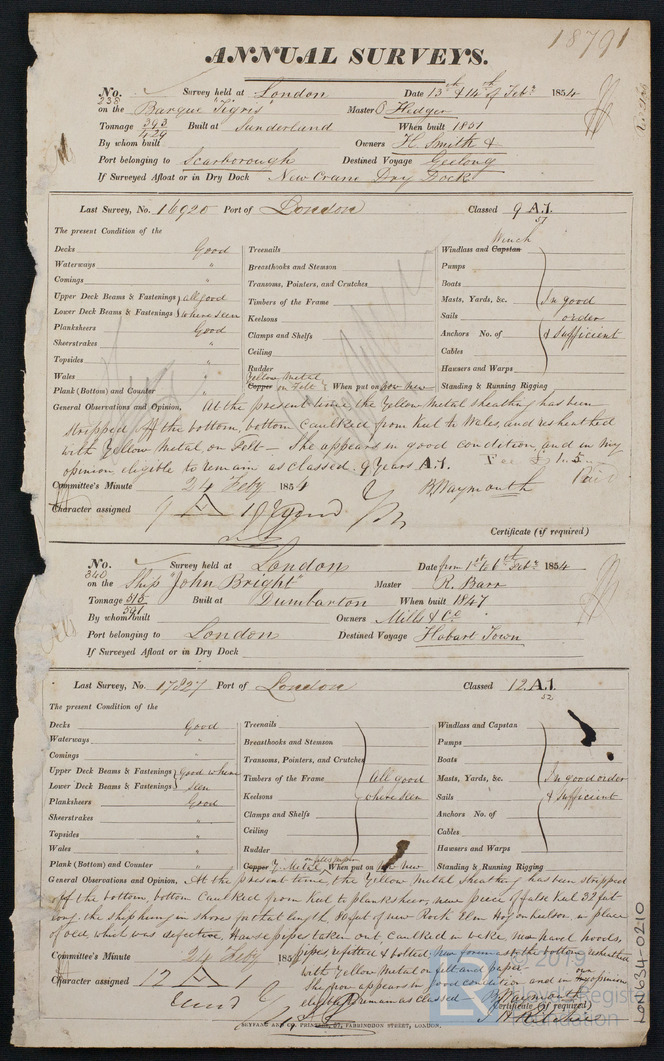 18791
ANNUAL SURVEYS.
No. 238 Survey held at London Date 13th & 14th of Feby 1854
on the Barque "Tigris" Master O Hedger
Tonnage 393 / 429 Built at Sunderland When built 1851
By whom built Owners H. Smith &
Port belonging to Scarborough Destined Voyage Geelong
If Surveyed Afloat or in Dry Dock New Crane Dry Dock
Last Survey, No. 16920 Port of London Classed 9 A.1. 51
The present Condition of the
Decks Good
Waterways "
Comings "
Upper Deck Beams & Fastenings } all good
Lower Deck Beams & Fastenings } where seen
Planksheers Good
Sheerstrakes "
Topsides "
Wales "
Plank (Bottom) and Counter "
Treenails
Breasthooks and Stemson
Transoms, Pointers, and Crutches
Timbers of the Frame
Keelsons
Clamps and Shelfs
Ceiling
Rudder
Yellow Metal
Copper on Felt When put on now new
Winch
Windlass and Capstan
Pumps
Boats
Masts, Yards, &c. In good
Sails order
Anchors No. of & sufficient
Cables
Hawsers and Warps
Standing & Running Rigging
General Observations and Opinion, At the present time the Yellow Metal sheathing has been
stripped off the bottom, bottom caulked from Keel to Wales, and resheathed
with Yellow Metal on Felt — She appears in good condition, and in my
opinion eligible to remain as classed 9 Years A.1. Fee £1. 5. Paid
Committee's Minute 24 Feby 1854 B Waymouth
Character assigned 9 A 1
Certificate (if required)
No. 340 Survey held at London Date from 1st to 6th Feby 1854
on the Ship "John Bright" Master R. Barr
Tonnage 518 / 591 Built at Dumbarton When built 1847
By whom built Owners Mills & Co
Port belonging to London Destined Voyage Hobart Town
If Surveyed Afloat or in Dry Dock
Last Survey, No. 17827 Port of London Classed 12 A.1. 52
The present Condition of the
Decks Good
Waterways "
Comings "
Upper Deck Beams & Fastenings } Good where
Lower Deck Beams & Fastenings } seen
Planksheers Good
Sheerstrakes "
Topsides "
Wales "
Plank (Bottom) and Counter "
Treenails
Breasthooks and Stemson
Transoms, Pointers, and Crutches
Timbers of the Frame All good
Keelsons where seen
Clamps and Shelfs
Ceiling
Rudder
Copper Y. Metal When put on now new
Windlass and Capstan
Pumps
Boats
Masts, Yards, &c. In good order
Sails & sufficient
Anchors No. of
Cables
Hawsers and Warps
Standing & Running Rigging
General Observations and Opinion, At the present time, the Yellow Metal Sheathing has been stripped
off the bottom, bottom caulked from keel to planksheer, new piece of false keel 32 feet
long, the ship hung in shores for that length 40 feet of new Rock Elm on keelson, in place
of old, which was defective, Hawse pipes taken out, caulked in wake, new hard woods,
pipes, refitted & bolted; the bottom resheathed
Committee's Minute 24 Feby 185
with Yellow Metal on felt and paper
She now appears in good condition and in our opinion
eligible to remain as classed
Character assigned 12 A 1
B Waymouth
Certificate (if required)
SEYFANG AND CO. PRINTERS, 57, FARRINGDON STREET, LONDON.
© 2019
Lloyd's Register
Foundation
LON634-0210